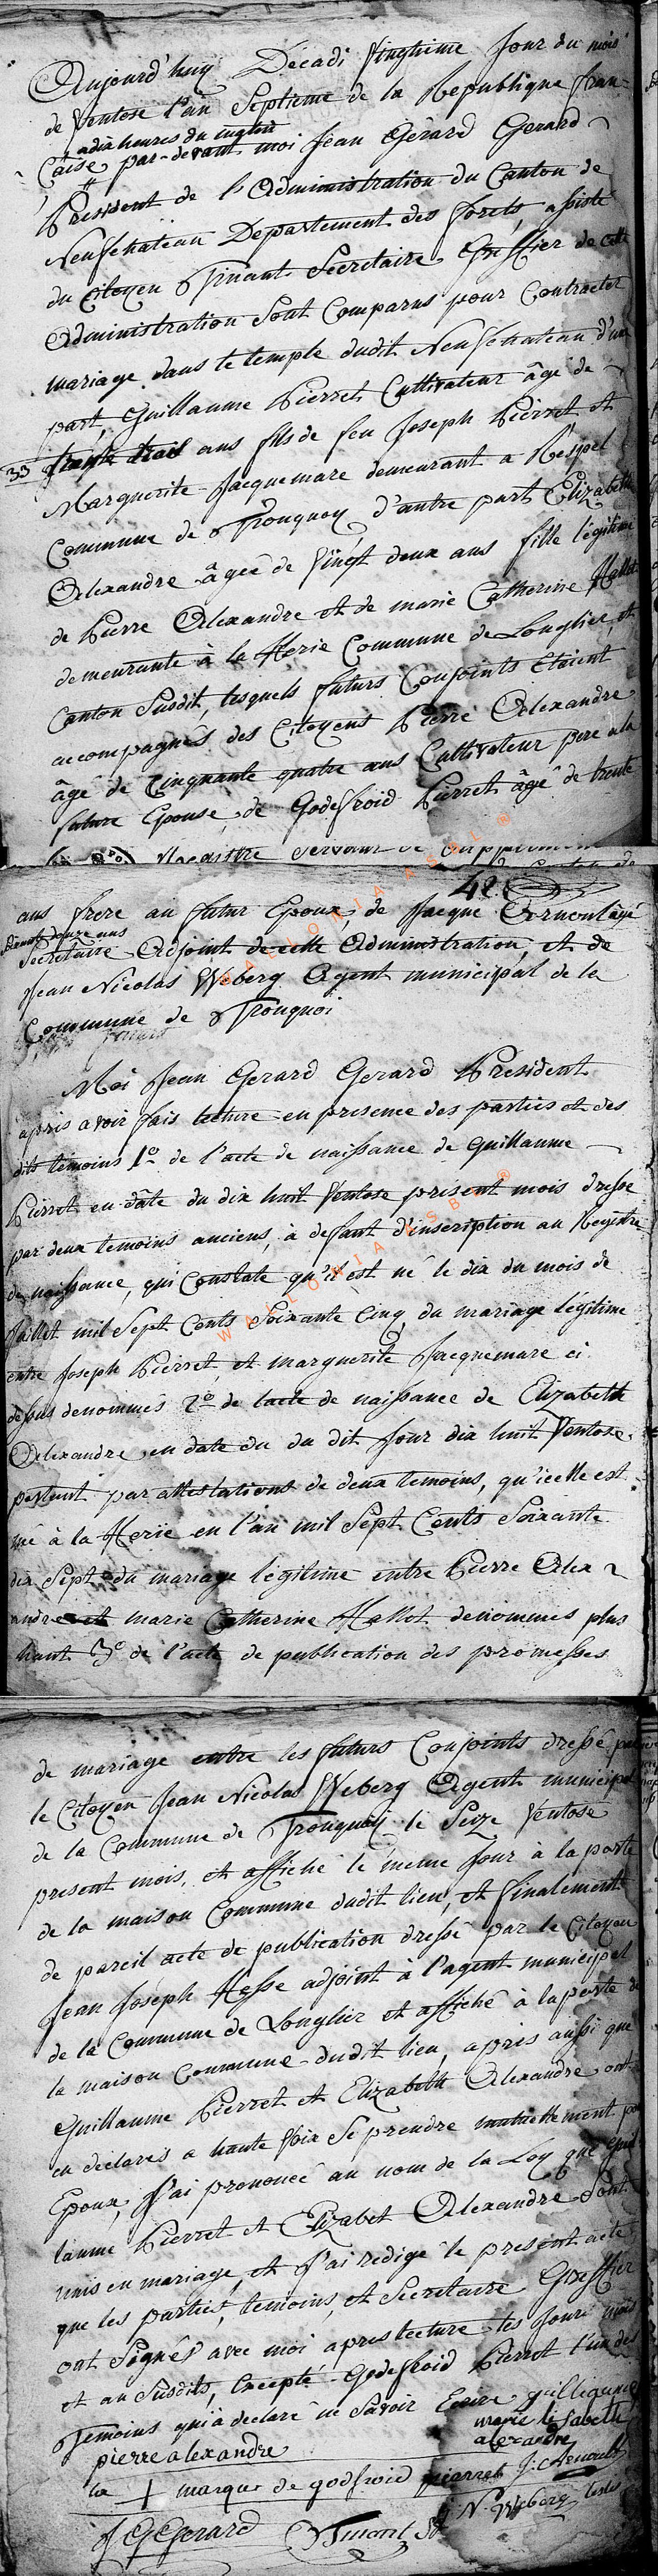 Aujourd'huy Décadi Vingtieme Jour du mois
de Ventose l'an Septieme de la Republique fran-
a dix heures du matin
Caise, par-devant moi Jean Gérard Gerard
President de l'Administration du Canton de
Neufchateau Departement des forets, assisté
du Citoyen Tinant Secretaire Greffier de cette
Administration Sont Comparus pour Contracter
mariage dans le temple dudit Neufchateau d'une
part, Guillaume Pierret Cultivateur âgé de
33 trente trois ans fils de feu Joseph Pierret et
Marguerite Jacquemare demeurant a Respel
Commune de Tronquoy d'autre part Elizabeth
Alexandre âgée de Vingt deux ans fille légitime
de Pierre Alexandre et de marie Catherine Hallot
demeurante à la Herie Commune de Longlier, et
Canton Susdit, lesquels futurs Conjoints étoient
accompagnés des Citoyens Pierre Alexandre
âgé de Cinquante quatre ans Cultivateur pere a la
future Epouse, de Godefroid Pierret âgé de trente
48
ans frere au futur Epoux, de Jacque Arnoul âgé
ans
Secretaire Adjoint de cette Administration, et de
Jean Nicolas Weberg Agent municipal de la
Commune de Tronquoi
Moi Jean Gerard Gerard President
apris avoir fais lecture en presence des parties et des
dits temoins 1º de l'acte de naissance de Guillaume
Pierret en date du dix huit Ventose present mois dresse
par deux temoins anciens, à defaut d'inscription au Registre
de naissance, qui Constate qu'il est né le dix du mois de
Juillet mil Sept Cents Soixante Cinq, du mariage légitime
entre Joseph Pierret, et marguerite Jacquemare ci
dessus denommés 2º de lacte de naissance de Elizabeth
Alexandre en date du du dit Jour dix huit Ventose
portant par attestations de deux temoins, qu'icelle est
né à la Herie en l'an mil Sept Cents Soixante
dix Sept du mariage légitime entre Pierre Alex
andre et marie Catherine Hallot denommes plus
haut 3º de l'acte de publication des promesses
de mariage entre les futurs Conjoints dressé par
le Citoyen Jean Nicolas Weberg Agent municipal
de la Commune de Tronquoy le Seize Ventose
present mois, et affiché le meme Jour à la porte
de la maison Commune dudit lieu, et finalement
de pareil acte de publication dressé par le Citoyen
Jean Joseph Hesse adjoint à l'agent municipal
de la Commune de Longlier et affiché à la porte de
la maison Commune dudit lieu, apris aussi que
Guillaume Pierret et Elizabeth Alexandre ont
eu declarés a haute Voix Se prendre mutuellement pour
Epoux, J'ai prononcé au nom de la Loy que Guil
laume Pierret et Elizabet Alexandre Sont
unis en mariage, et J'ai redigé le present acte
que les parties, temoins, et Secretaire Greffier
ont Signés avec moi apres lecture les Jour mois
et an Susdits, Excepté Godefroid Pierret l'un des
Temoins qui à declaré ne Savoir Ecrire guilliaume
pierre alexandre marie lisabeth
alexandre
la + marque de godfroid pierret J: Arnould
J. N. Weberg
J G Gerard Tinant
WALLONIA ASBL ®
WALLONIA ASBL ®